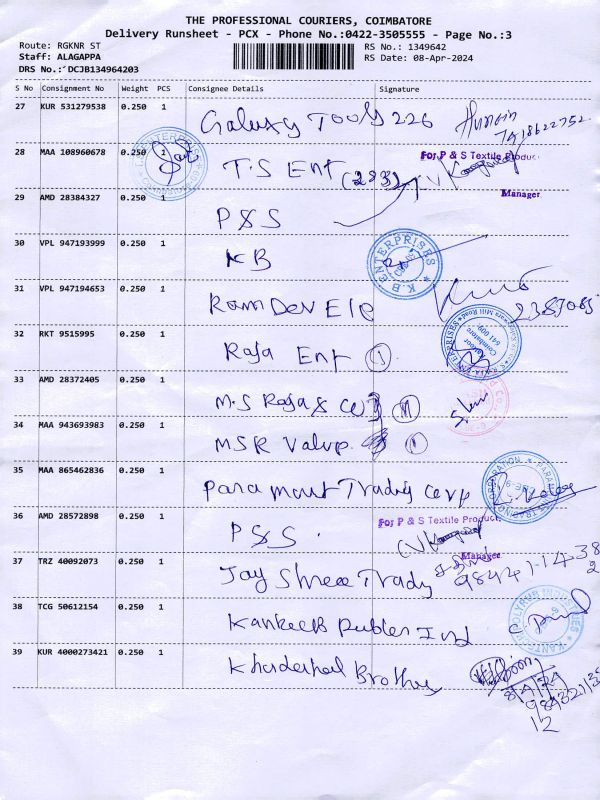 THE PROFESSIONAL COURIERS, COIMBATORE
Delivery Runsheet - PCX - Phone No.:0422-3505555 - Page No.:3
Route: RGKNR ST
Staff: ALAGAPPA
DRS No.: DCJB134964203
RS No.: 1349642
RS Date: 08-Apr-2024
S No Consignment No Weight PCS Consignee Details Signature
27 KUR 531279538 0.250 1 Galaxy Tools 226
28 MAA 108960678 0.250 1 T.S Ent (283)
For P & S Textile Produc
Manager
29 AMD 28384327 0.250 1 P&S
30 VPL 947193999 0.250 1 KB
K.B ENTERPRISES
31 VPL 947194653 0.250 1 Ram Dev Ele
32 RKT 9515995 0.250 1 Raja Ent 1
Coimbatore
641 009
33 AMD 28372405 0.250 1 M.S Raja &
34 MAA 943693983 0.250 1 MSR Valve 1
35 MAA 865462836 0.250 1 Paramount Trading Corp
36 AMD 28572898 0.250 1 P&S
For P & S Textile Product
Manager
37 TRZ 40092073 0.250 1 Jay Shree Trady
38 TCG 50612154 0.250 1 Ind
39 KUR 4000273421 0.250 1 Brothers
8/4/24
12